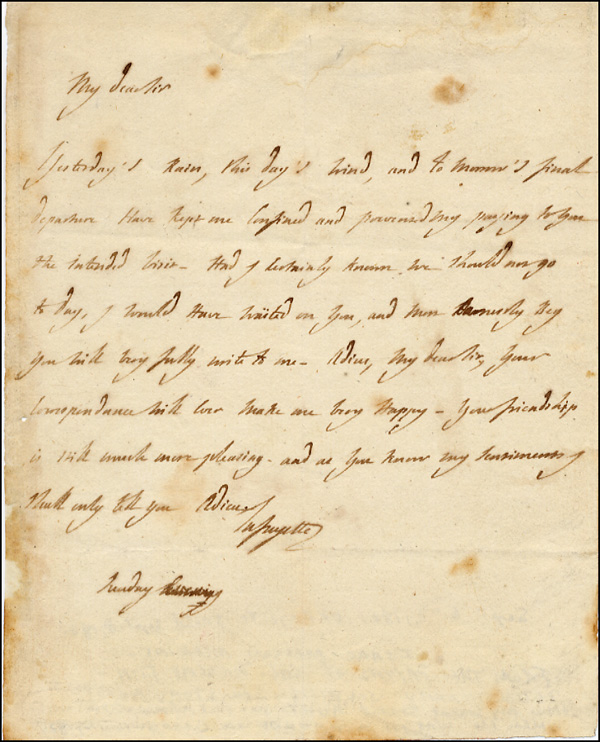 My dear sir
Yesterday's Rain, this day's Wind, and to Morrow's final
departure Have Kept me Confined and prevented my paying to You
the intended Visit - Had I Certainly Known we should not go
to day, I would Have Waïted on You, and Most Earnestly Beg
You will very fully write to me - Adieu, My dear sir, Your
Correspondance will Ever Make me very Happy - Your friendship
is still much more pleasing - and as You Know my Sentiments I
shall only tell you Adieu
Lafayette
Sunday Evening